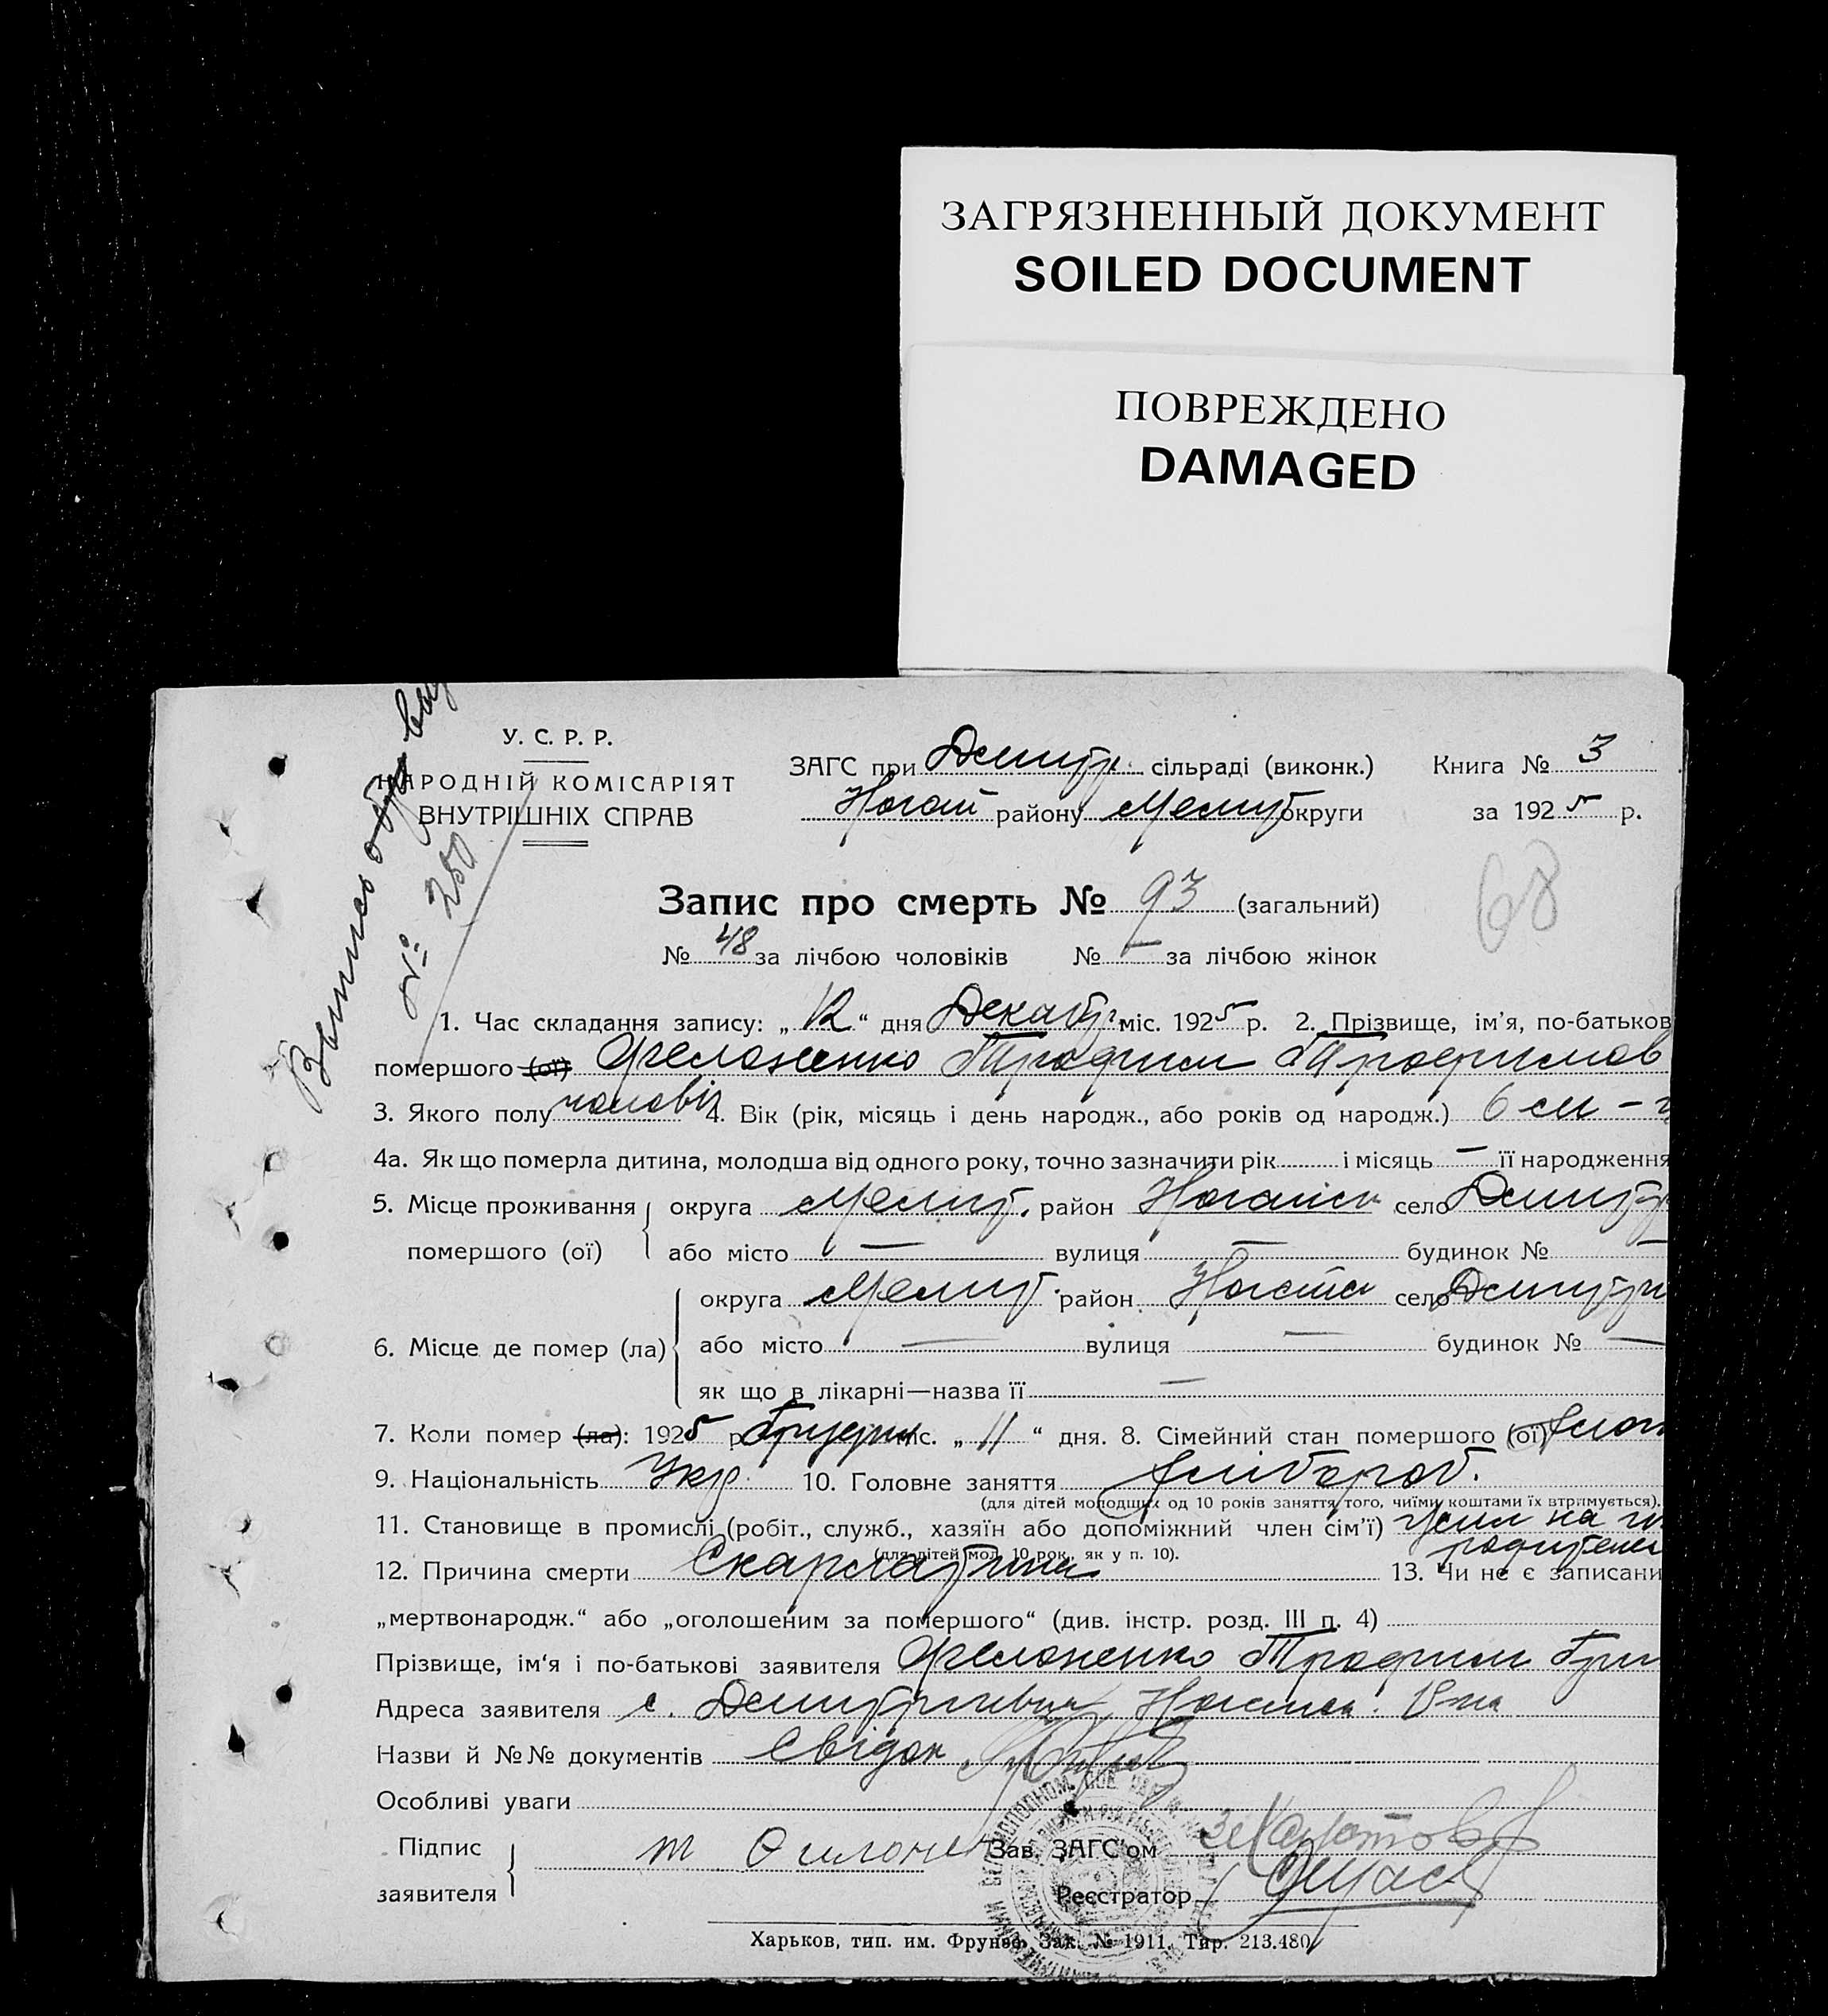 ЗАГРЯЗНЕННЫЙ ДОКУМЕНТ
SOILED DOCUMENT
ПОВРЕЖДЕНО
DAMAGED
У. С. Р. Р.
НАРОДНІЙ КОМІСАРІЯТ
ВНУТРІШНІХ СПРАВ
№ 250
ЗАГС при Дмитр. сільраді (виконк.) Книга № 3
Ногай району Меліт округи за 1925 р.
Запис про смерть № 93 (загальний)
№ 48 за лічбою чоловіків № — за лічбою жінок
68
1. Час складання запису: „12“ дня Декабр міс. 1925 р. 2. Прізвище, ім'я, по-батьков
помершого (ої) Филоненко Трофим Трофимов
3. Якого полу чоловік 4. Вік (рік, місяць і день народж., або років од народж.) 6
4а. Як що померла дитина, молодша від одного року, точно зазначити рік і місяць — її народження
5. Місце проживання округа Мелит. район Ногайск село Дмитр
помершого (ої) або місто — вулиця — будинок № —
округа Мелит. район Ногайск село Дмитри
6. Місце де помер (ла) або місто — вулиця — будинок № —
як що в лікарні—назва її —
7. Коли помер (ла): 1925 р. міс. „11“ дня. 8. Сімейний стан помершого (ої)
9. Національність Укр. 10. Головне заняття хлібороб.
(для дітей молодших од 10 років заняття того, чиїми коштами їх втримується).
11. Становище в промислі (робіт., служб., хазяїн або допоміжний член сім'ї)
(для дітей мол. 10 рок., як у п. 10).
12. Причина смерти Скарлатина 13. Чи не є записани
„мертвонародж.“ або „оголошеним за помершого“ (див. інстр. розд. III п. 4)
Прізвище, ім'я і по-батькові заявителя Филоненко Трофим
Адреса заявителя с. Дмитривка Ногайск. р-на
Назви й №№ документів Свідок
Особливі уваги
Підпис
заявителя
т Филонен
Зав. ЗАГС'ом
Реєстратор
Харьков, тип. им. Фрунзе. Зак. № 1911. Тир. 213.480.